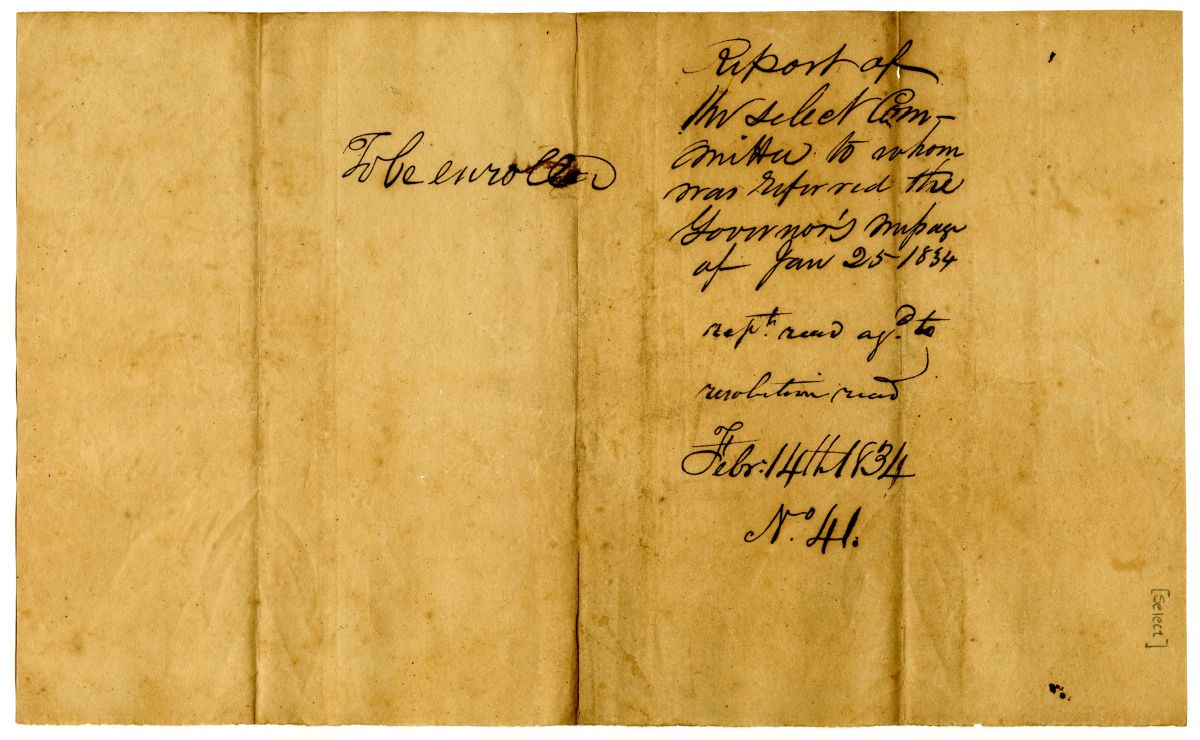 To be enrolled
Report of
the select Com-
mittee to whom
was referred the
Governor's message
of Jan 25 1834
rept. read agd. to
resolution read
Febr: 14th 1834
No. 41.
[Select]